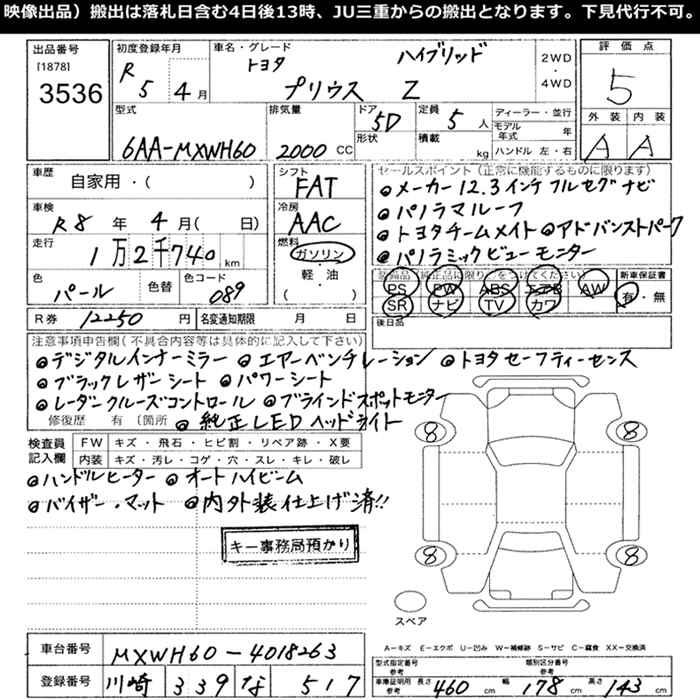 映像出品）搬出は落札日含む4日後13時、JU三重からの搬出となります。下見代行不可。
出品番号
[1878]
3536
初度登録年月
R 5 4月
車名・グレード
トヨタ ハイブリッド
プリウス Z
2WD
・
4WD
評価点
5
外装 内装
A A
型式
6AA-MXWH60
排気量
2000 CC
ドア
5D
形状
定員
5 人
積載
kg
ディーラー・並行
モデル年式 年
ハンドル 左・右
車歴
自家用・( )
車検
R8 年 4 月( 日)
走行
1万2千740 km
色
パール
色替
色コード
089
シフト
FAT
冷房
AAC
燃料
ガソリン
・
軽・油
( )
セールスポイント（正常に機能するものに限ります）
◎メーカー12.3インチフルセグナビ
◎パノラマルーフ
◎トヨタチームメイト ◎アドバンストパーク
◎パノラミックビューモニター
装備品（純正品に限り○をつけてください）
PS PW ABS エアB AW
SR ナビ TV カワ
新車保証書
有・無
後日品
R券 12250 円
名変通知期限 月 日
注意事項申告欄（不具合内容等は具体的に記入して下さい）
◎デジタルインナーミラー ◎エアーベンチレーション ◎トヨタセーフティーセンス
◎ブラックレザーシート ◎パワーシート
◎レーダークルーズコントロール ◎ブラインドスポットモニター
修復歴 有 〔箇所 ◎純正LEDヘッドライト
検査員記入欄
FW キズ・飛石・ヒビ割・リペア跡・X要
内装 キズ・汚レ・コゲ・穴・スレ・キレ・破レ
◎ハンドルヒーター ◎オートハイビーム
◎バイザー・マット ◎内外装仕上げ済!!
キー事務局預かり
8 8
8 8
スペア
A－キズ E－エクボ U－凹み W－補修跡 S－サビ C－腐食 XX－交換済
車台番号
MXWH60-4018263
登録番号
川崎 339 な 517
型式指定番号
参考
類別区分番号
参考
車庫証明用 長さ
参考 460 cm
幅
178 cm
高さ
143 cm